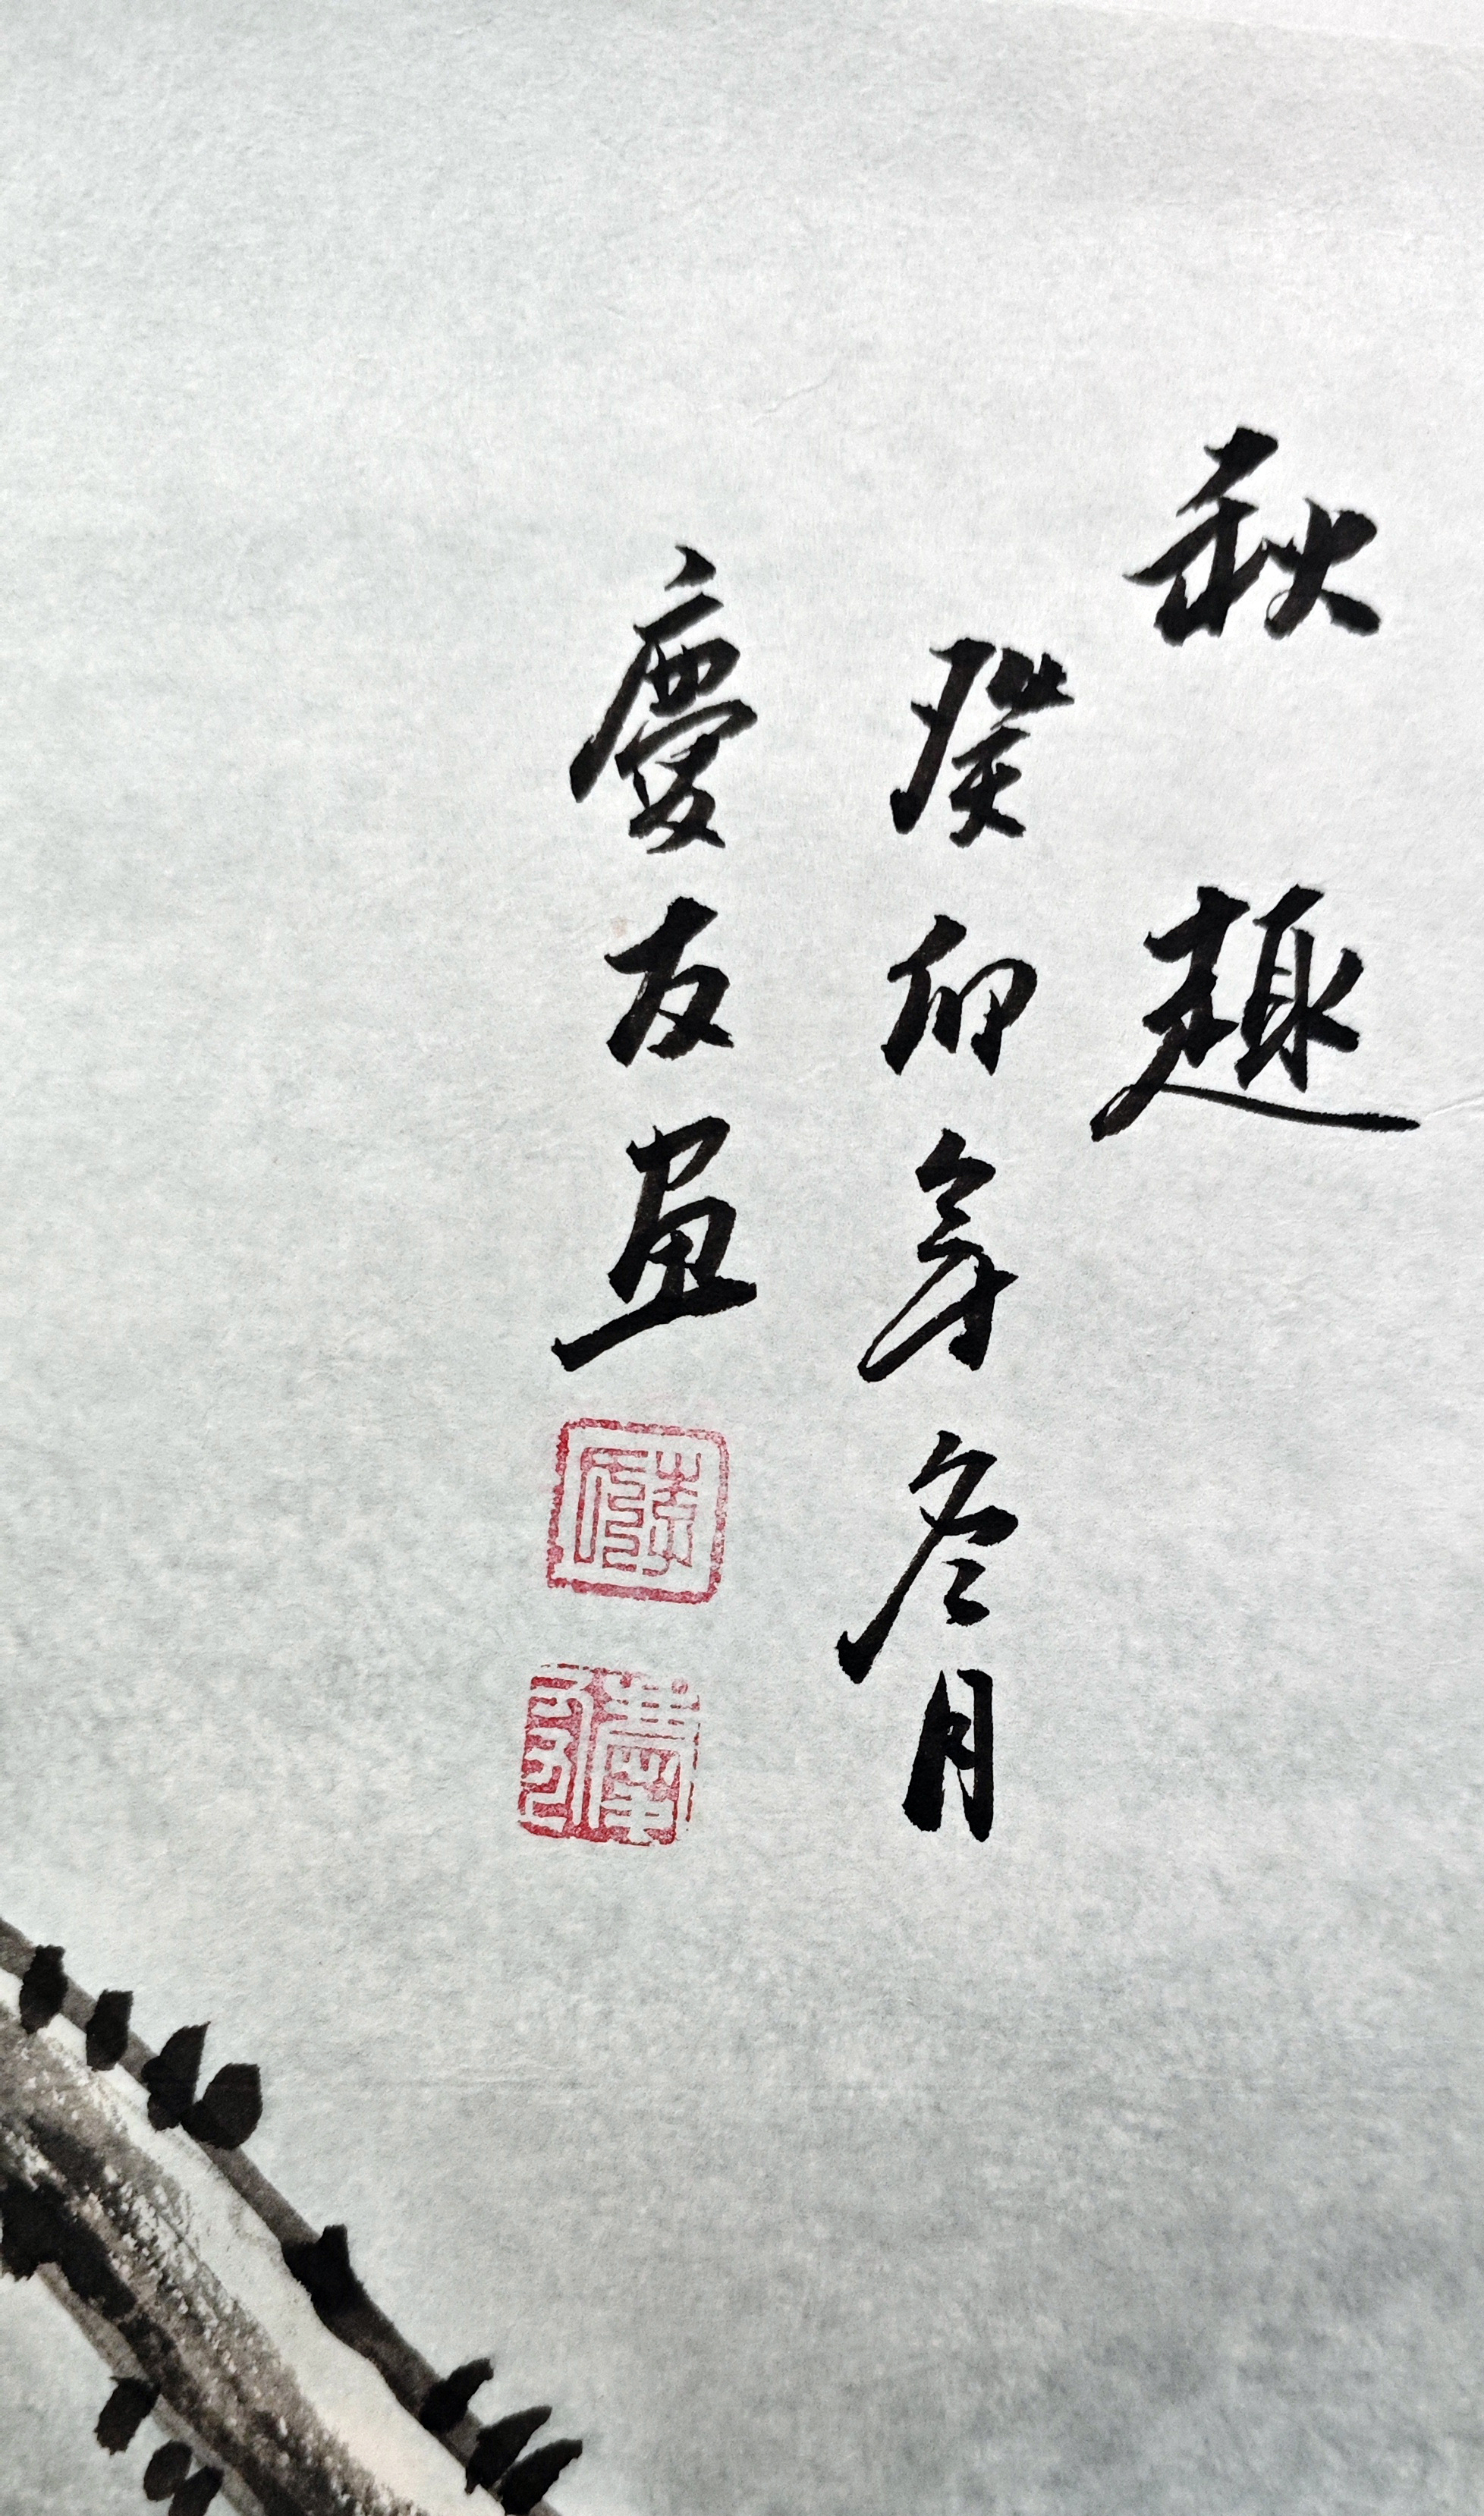 秋趣
癸卯年冬月
慶友畫